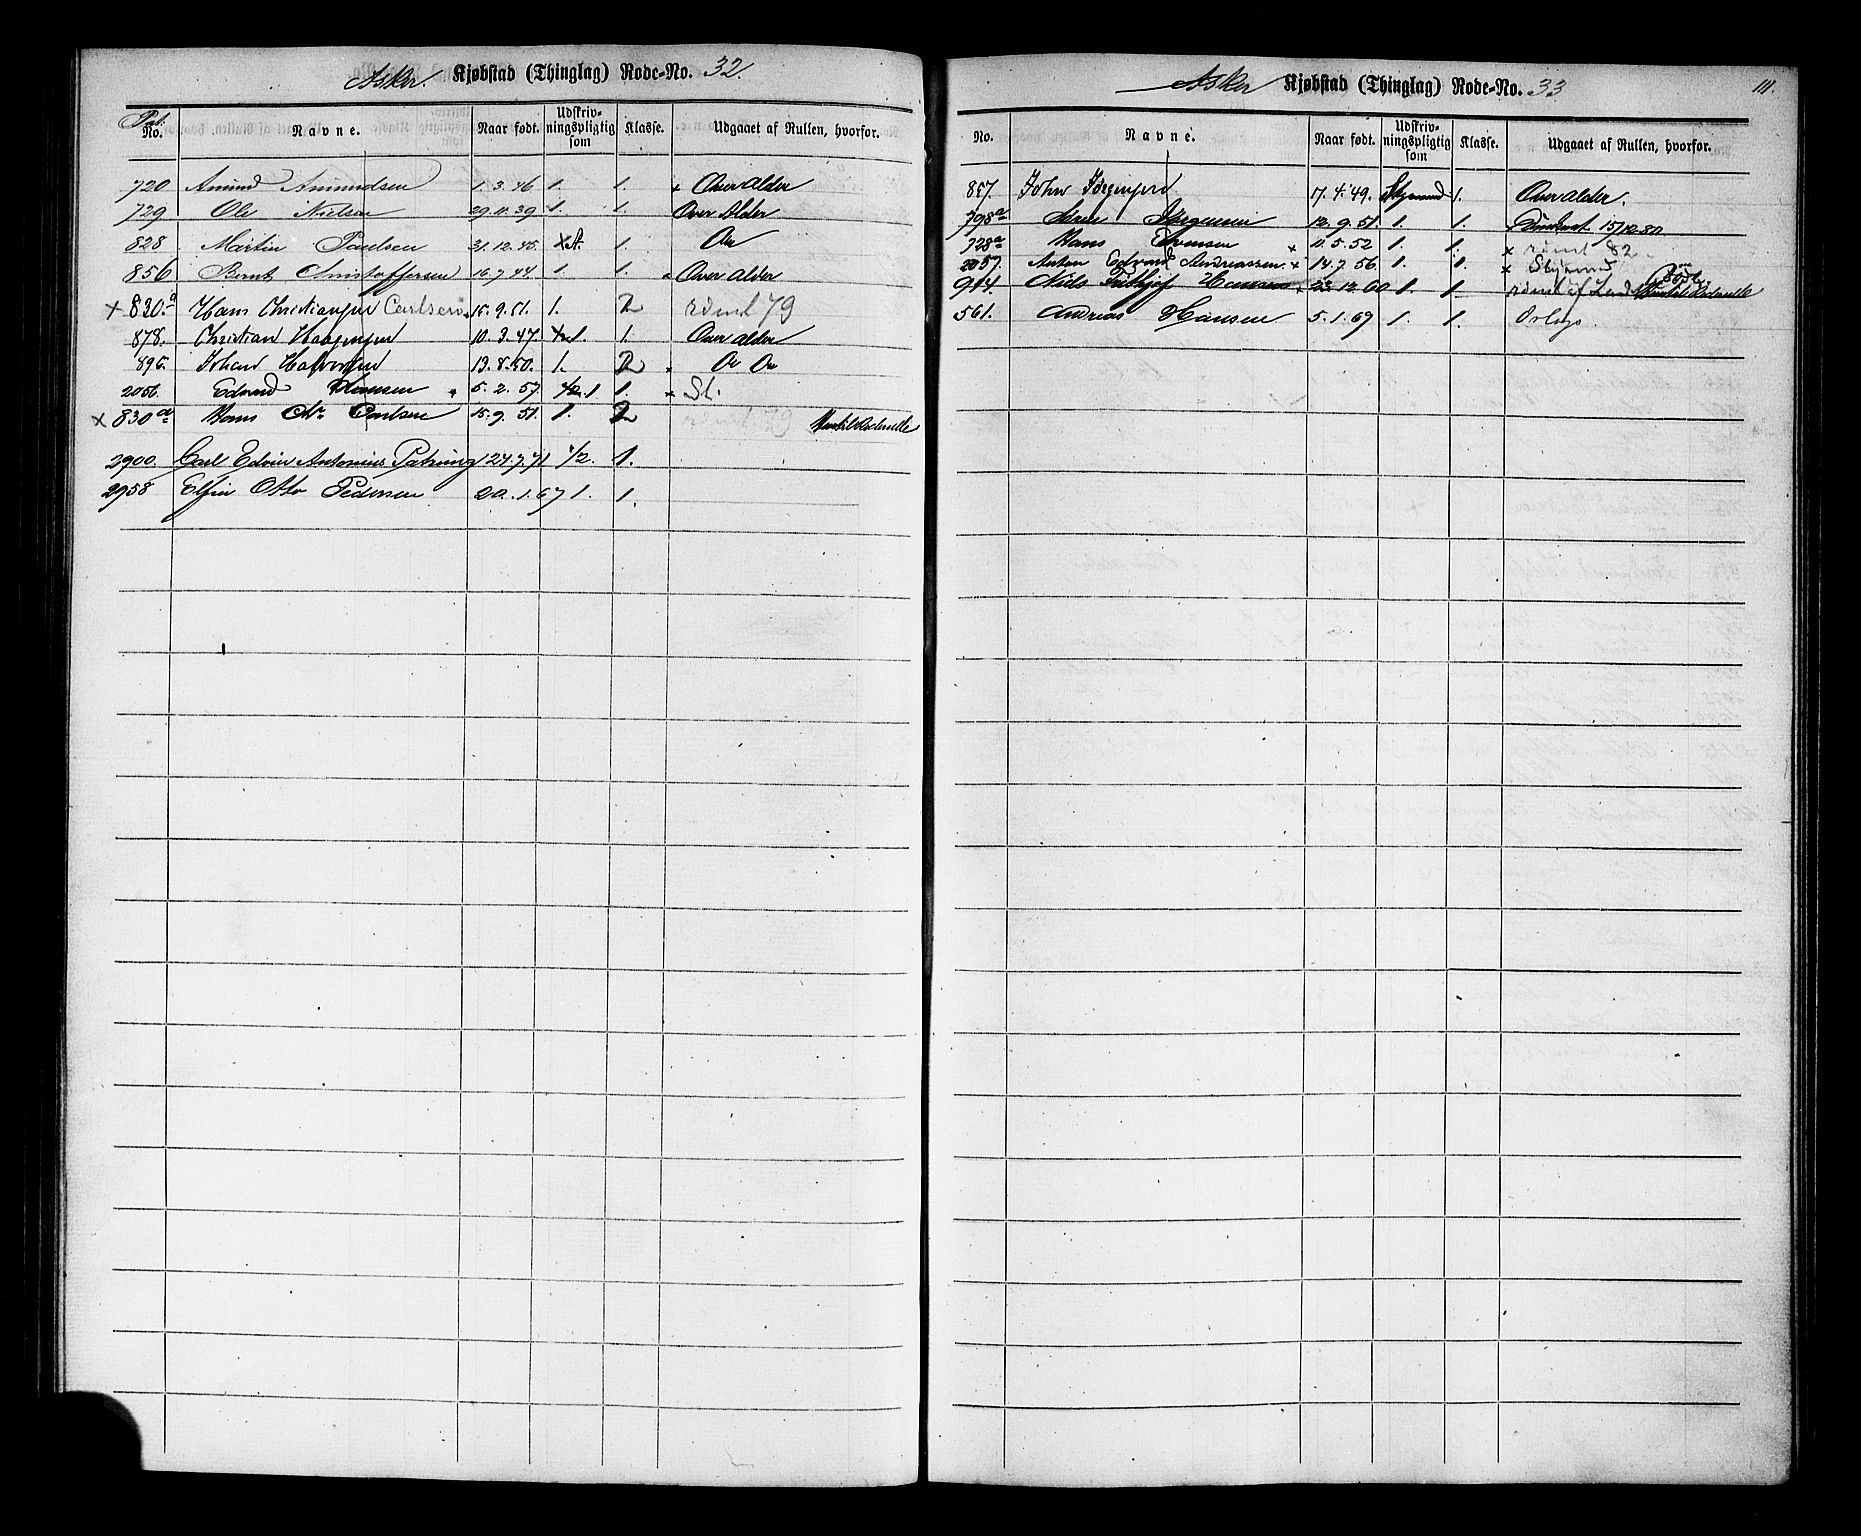 Asker. Kjøbstad (Thinglag) Rode-No. 32.
Pat. No. Navne. Naar født. Udskrivningspligtig som Klasse. Udgaaet af Rullen, hvorfor.
720 Amund Amundsen 1.3.46 1. 1. + Over alder
729 Ole Nielsen 29.11.39 1. 1. Over Alder
828 Martin Paulsen 31.12.45 1. Oa
856 Bernt Christoffersen 16.7.44 1. 1. Over alder
x 830.a Hans Christiansen Carlsen 15.9.51. 1. 2 rømt 79
878. Christian Haagensen 10.3.47. 1. Over alder
895. Johan Halvorsen 13.8.50. 1. 2 Oa Oa
2056. Edvard Hansen 5.2.57 1. St.
x 830 a Hans Chr. Carlsen 15.9.51. 1. 2 rømt 79
2900. Carl Edvin Antonius 24.7.71 1/2. 1.
2958 Otto Pedersen 20.1.67 1. 1.
Asker Kjøbstad (Thinglag) Rode-No. 33
111.
No. Navne. Naar født. Udskrivningspligtig som Klasse. Udgaaet af Rullen, hvorfor.
857. John Jørgensen 17.4.49. Styrmand 1. Over alder.
798a Jørgensen 12.9.51. 1. 1. 15/12 80
728a Hans Evensen x 11.5.52 1. 1. x rømt 82.
2057. Anton Edvard Andreassen x 14.7.56. 1. 1. x Styrmd
914. Nils Frithjof Hansen 23.12.60 1. 1. rømt
561. Andreas Hansen 5.1.69 1. 1. Orlogs.